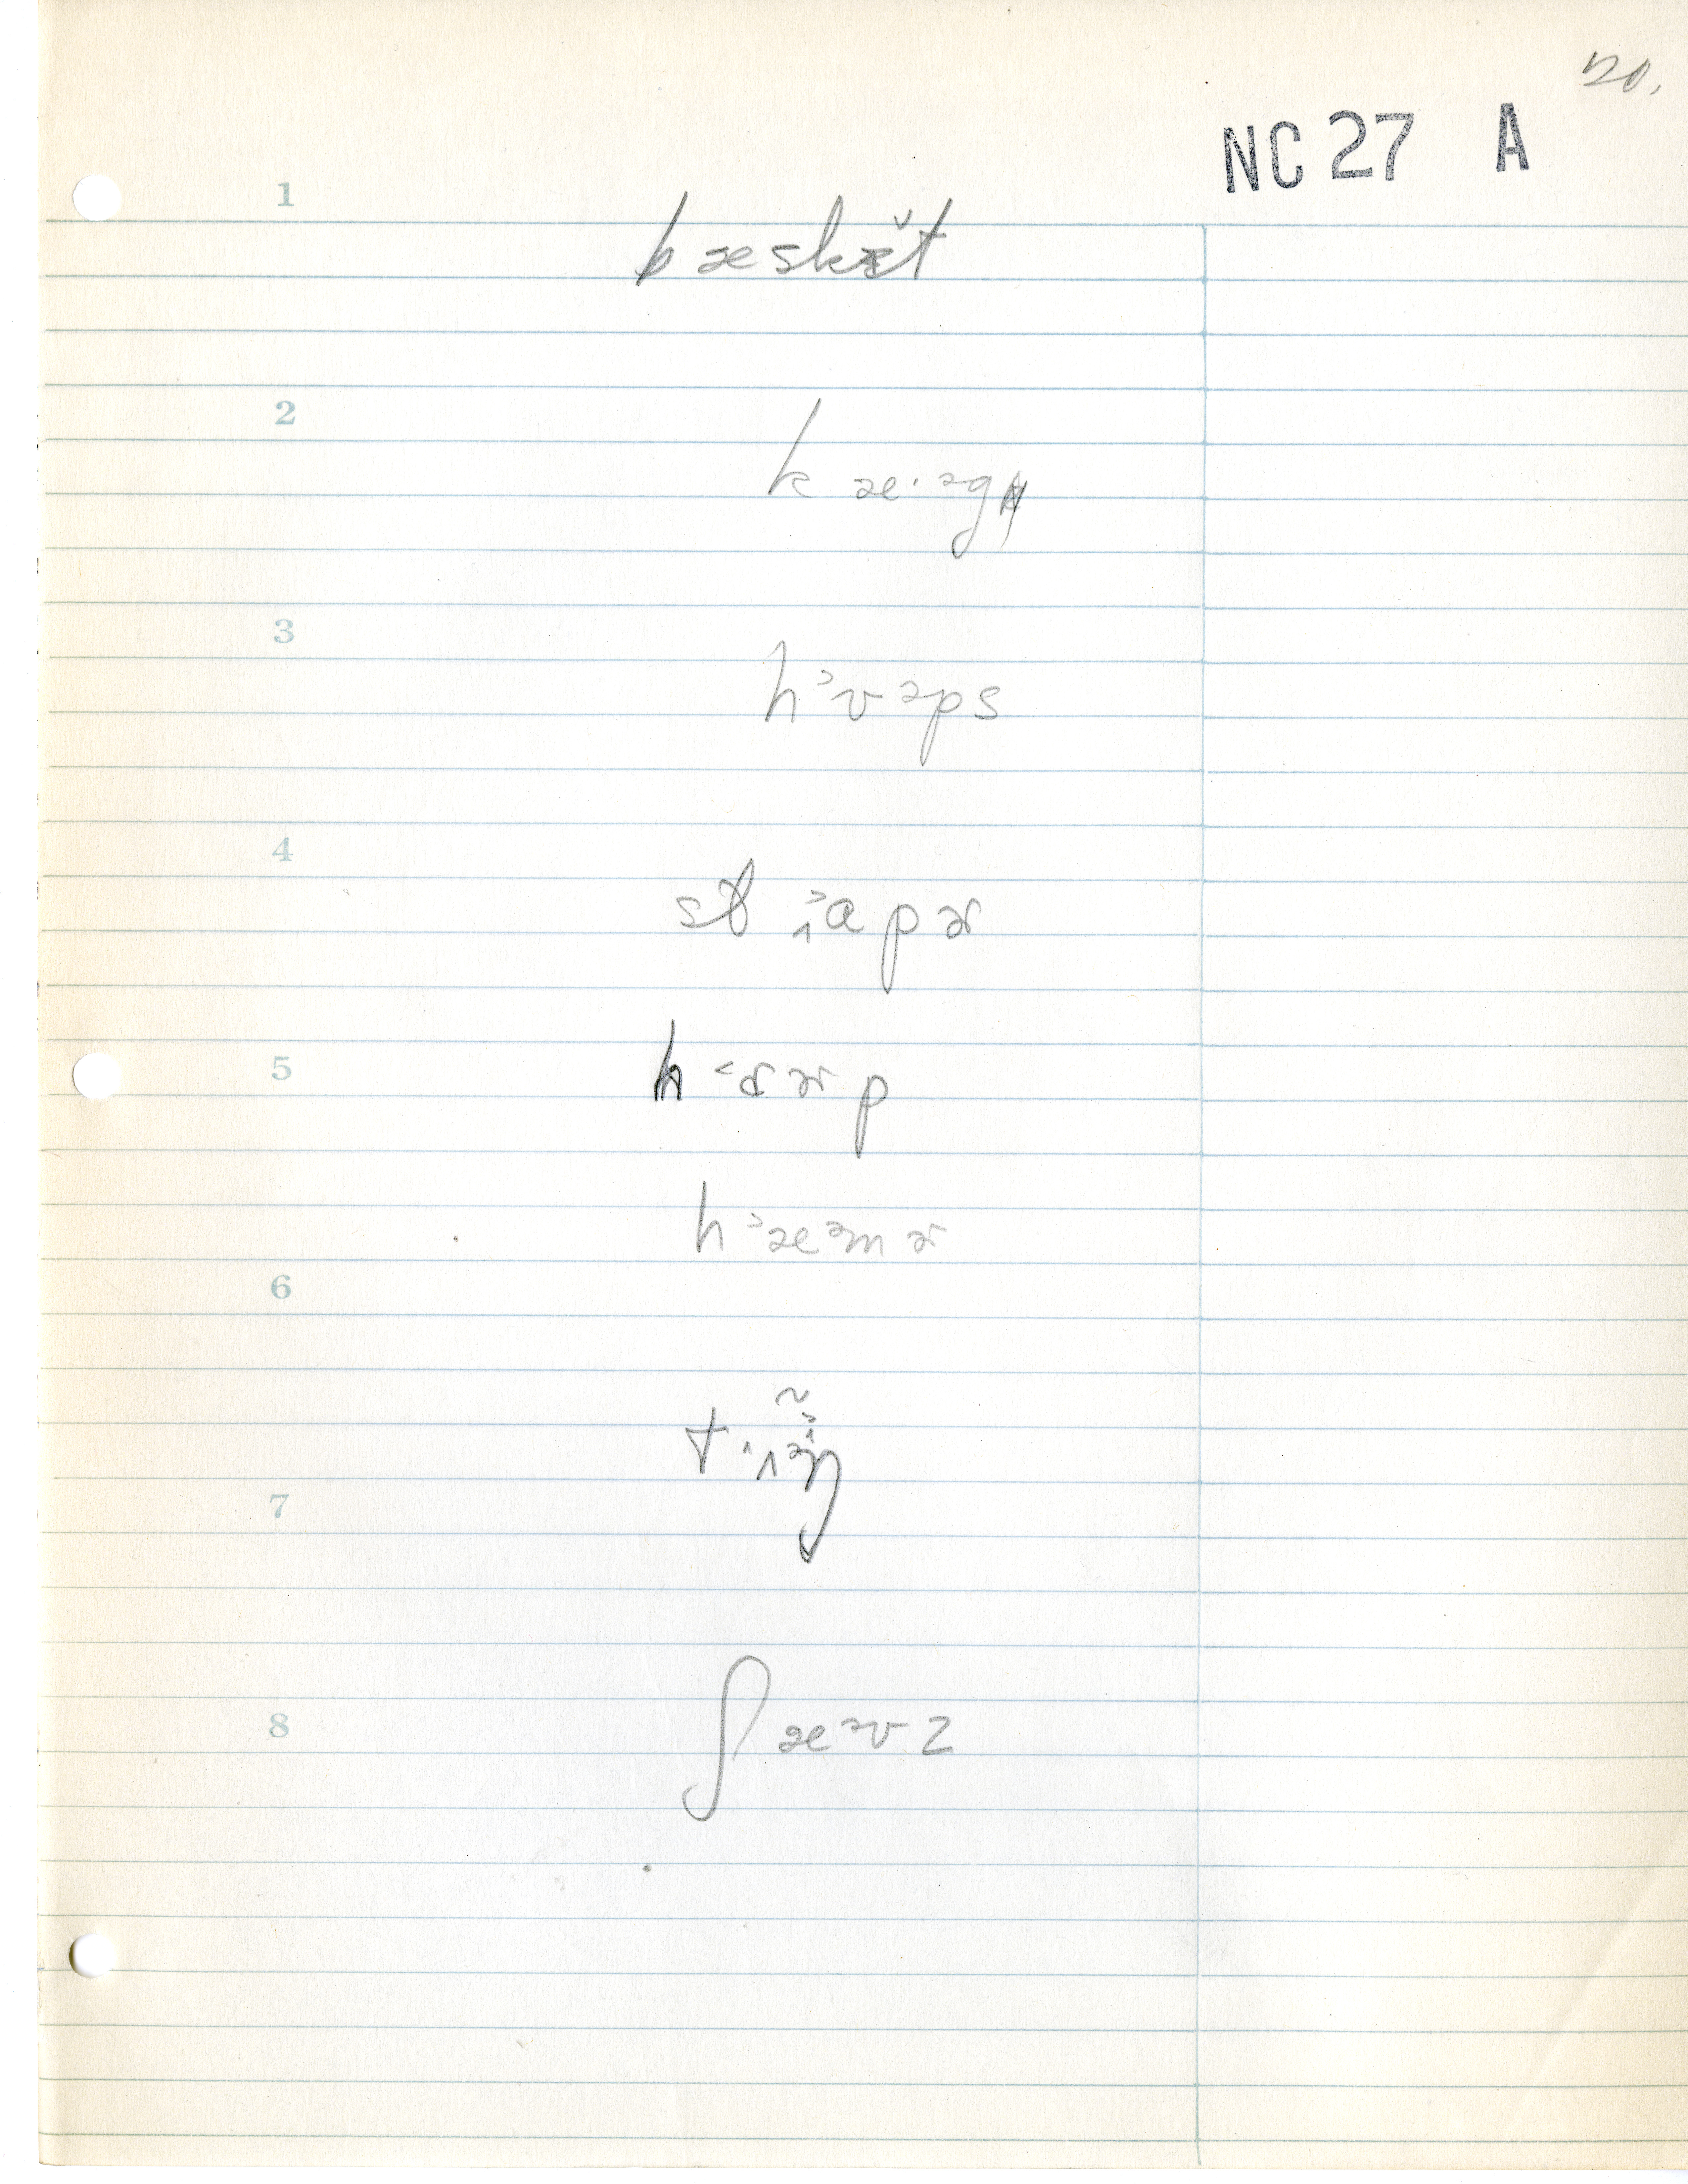 20.
NC 27 A
1
bæskə̆t
2
kæ·əg
3
h˃ʊəps
4
st ɪ˃ɑpɚ
5
h˂ɑɚp
h˃æəmɚ
6
tˈɪə̃ŋ
7
8
ʃæəvz